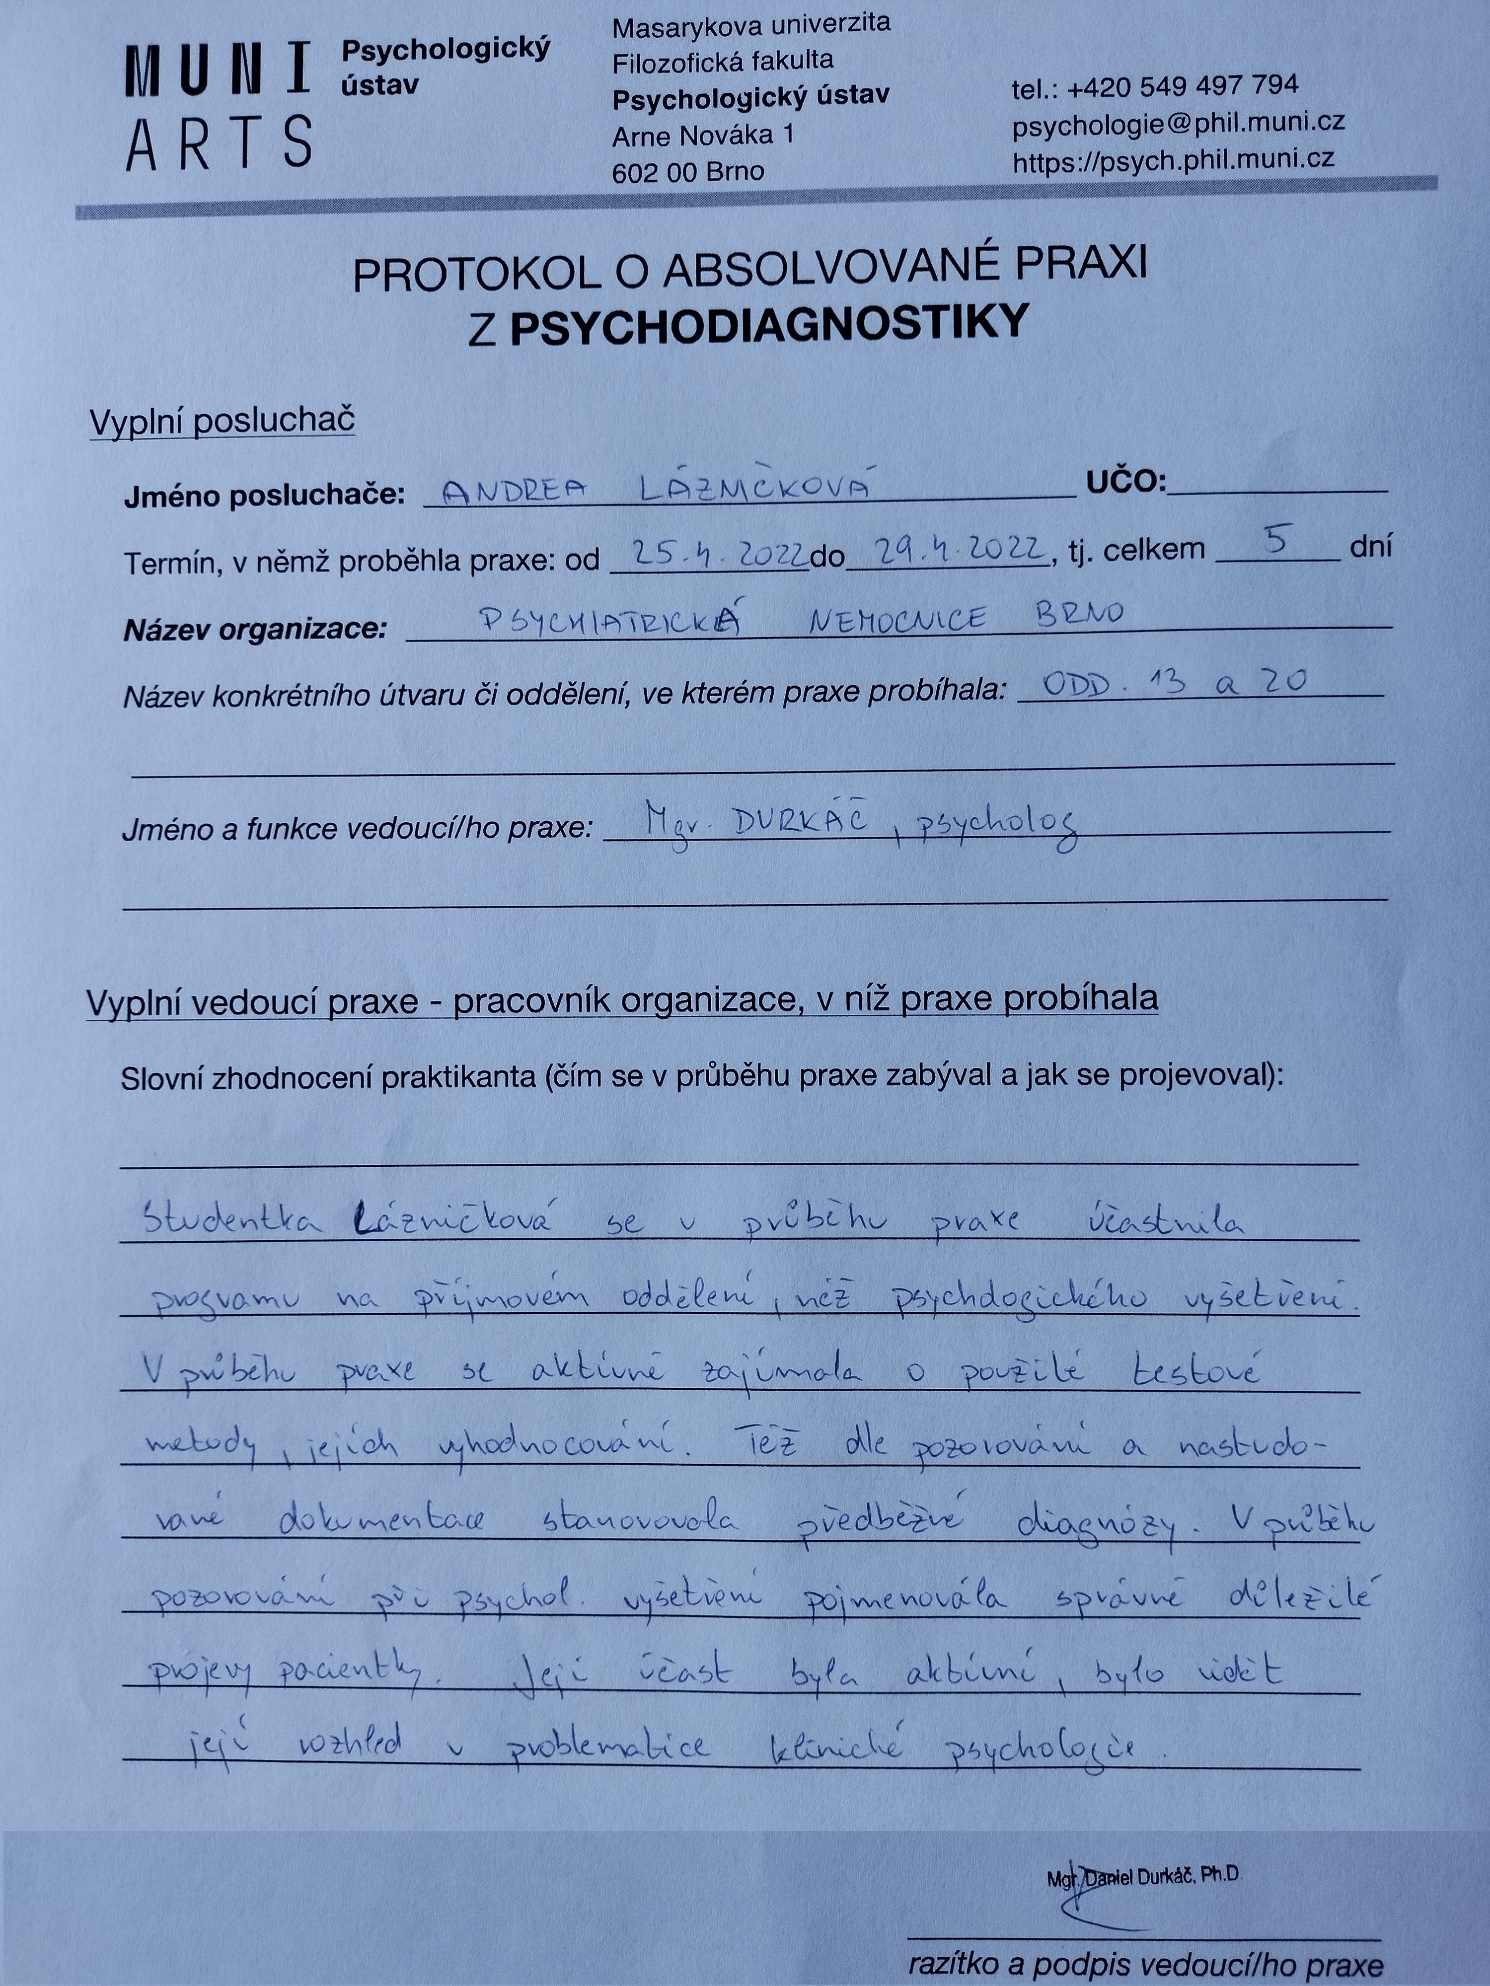 MUNI
ARTS
Psychologický
ústav
Masarykova univerzita
Filozofická fakulta
Psychologický ústav
Arne Nováka 1
602 00 Brno
tel.: +420 549 497 794
psychologie@phil.muni.cz
https://psych.phil.muni.cz
PROTOKOL O ABSOLVOVANÉ PRAXI
Z PSYCHODIAGNOSTIKY
Vyplní posluchač
Jméno posluchače: ANDREA LÁZNIČKOVÁ UČO:
Termín, v němž proběhla praxe: od 25.4.2022 do 29.4.2022, tj. celkem 5 dní
Název organizace: PSYCHIATRICKÁ NEMOCNICE BRNO
Název konkrétního útvaru či oddělení, ve kterém praxe probíhala: ODD. 13 a 20
Jméno a funkce vedoucí/ho praxe: Mgr. DURKÁČ, psycholog
Vyplní vedoucí praxe - pracovník organizace, v níž praxe probíhala
Slovní zhodnocení praktikanta (čím se v průběhu praxe zabýval a jak se projevoval):
Studentka Lázničková se v průběhu praxe účastnila
programu na příjmovém oddělení, psychologického vyšetření.
V průběhu praxe se aktivně zajímala o použité testové
metody, jejich vyhodnocování. Též dle pozorování a nastudo-
vané dokumentace stanovovala předběžné diagnózy. V průběhu
pozorování při psychol. vyšetření pojmenovála správně důležité
projevy pacientky. Její účast byla aktivní, bylo vidět
její rozhled v problematice klinické psychologie.
Mgr. Daniel Durkáč, Ph.D
razítko a podpis vedoucí/ho praxe